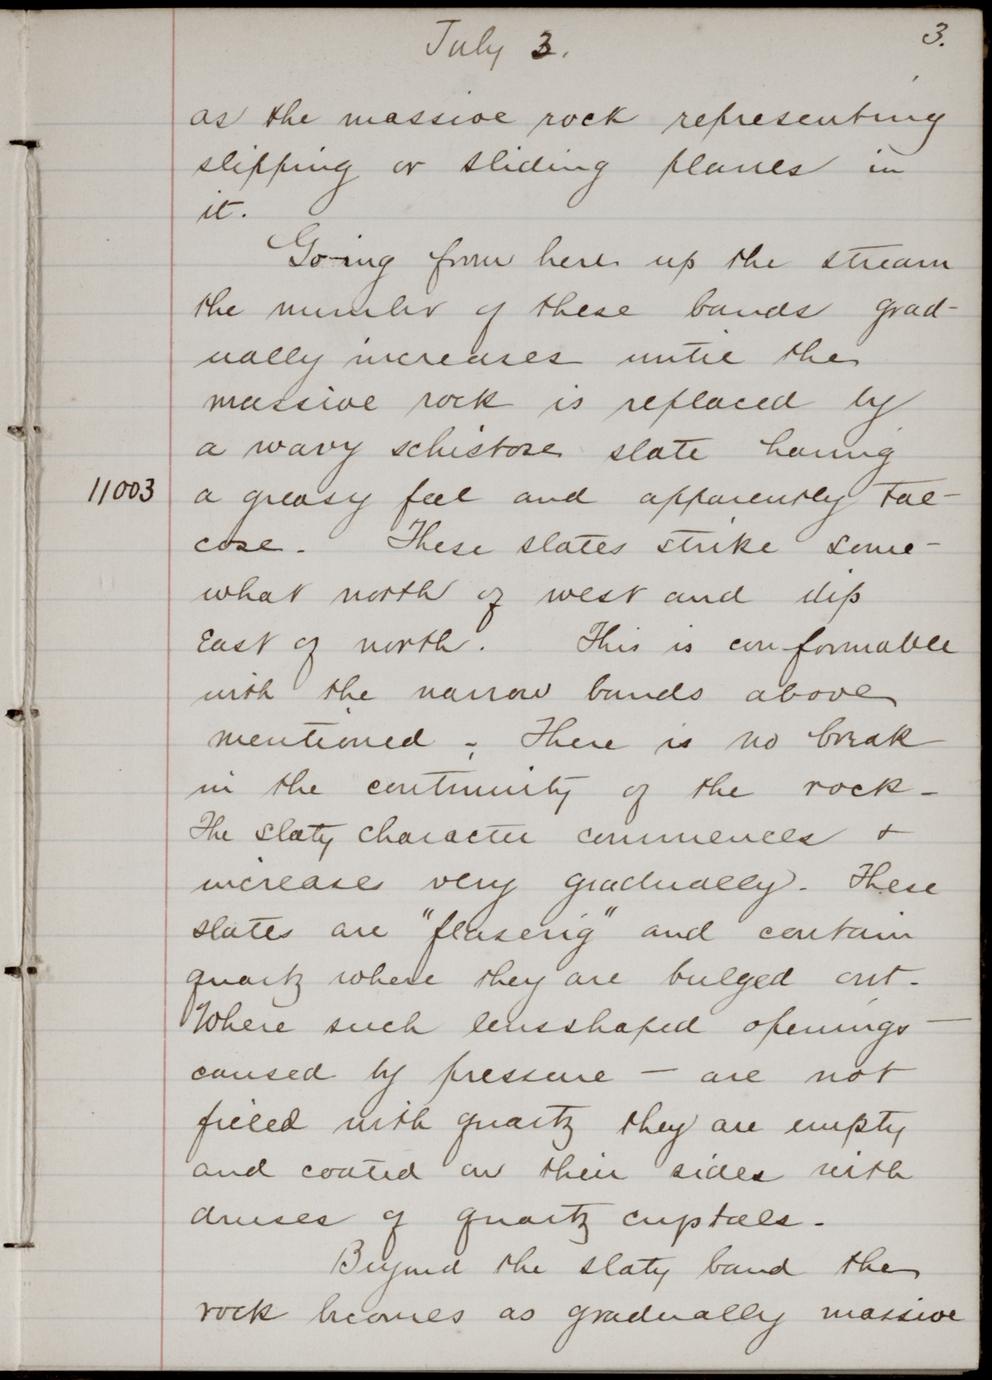 July 3.
3.
as the massive rock representing
slipping or sliding planes in
it.
Going from here up the stream
the number of these bands grad-
ually increases until the
massive rock is replaced by
a wavy schistose slate having
11003
a greasy feel and apparently tal-
cose. These slates strike some-
what north of west and dip
East of north. This is conformable
with the narrow bands above
mentioned. There is no break
in the continuity of the rock -
The slaty character commences +
increases very gradually. These
slates are "flaserig" and contain
quartz where they are bulged out.
Where such lensshaped openings —
caused by pressure — are not
filled with quartz they are empty
and coated on their sides with
druses of quartz crystals.
Beyond the slaty band the
rock becomes as gradually massive